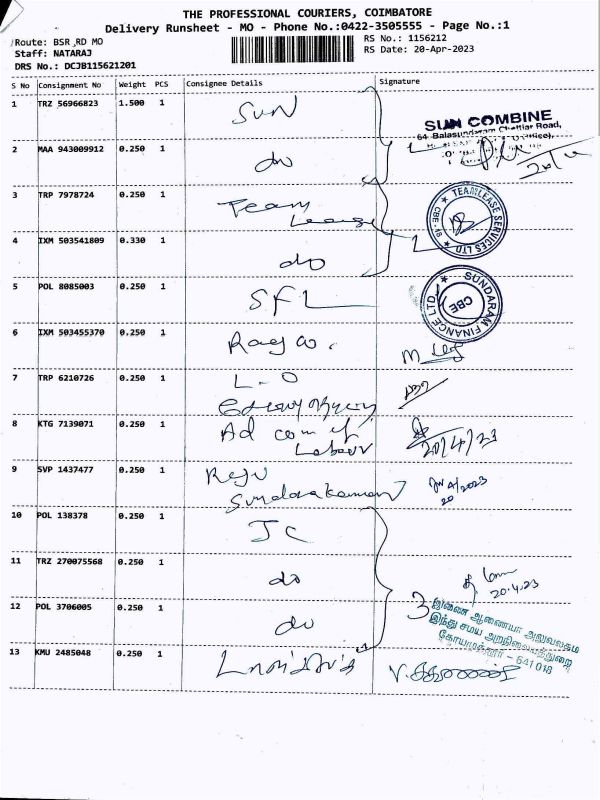 THE PROFESSIONAL COURIERS, COIMBATORE
Delivery Runsheet - MO - Phone No.:0422-3505555 - Page No.:1
Route: BSR RD MO
RS No.: 1156212
Staff: NATARAJ
RS Date: 20-Apr-2023
DRS No.: DCJB115621201
S No Consignment No Weight PCS Consignee Details Signature
1 TRZ 56966823 1.500 1 SUN
SUN COMBINE
64 Balasundaram Chettiar Road,
2 MAA 943009912 0.250 1 do
3 TRP 7978724 0.250 1 Team
Lease
TEAMLEASE SERVICES LTD
CBE-18
4 IXM 503541809 0.330 1 do 2
5 POL 8085003 0.250 1 SFL
SUNDARAM FINANCE LTD
CBE
6 IXM 503455370 0.250 1
7 TRP 6210726 0.250 1 L-O
8 KTG 7139071 0.250 1 Ad com of
Labour
20/4/23
9 SVP 1437477 0.250 1
10 POL 138378 0.250 1 JC
11 TRZ 270075568 0.250 1 do
20.4.23
12 POL 3706005 0.250 1 do 3
இணை ஆணையர் அலுவலகம்
இந்து சமய அறநிலையத்துறை
கோயமுத்தூர் - 641 018
13 KMU 2485048 0.250 1